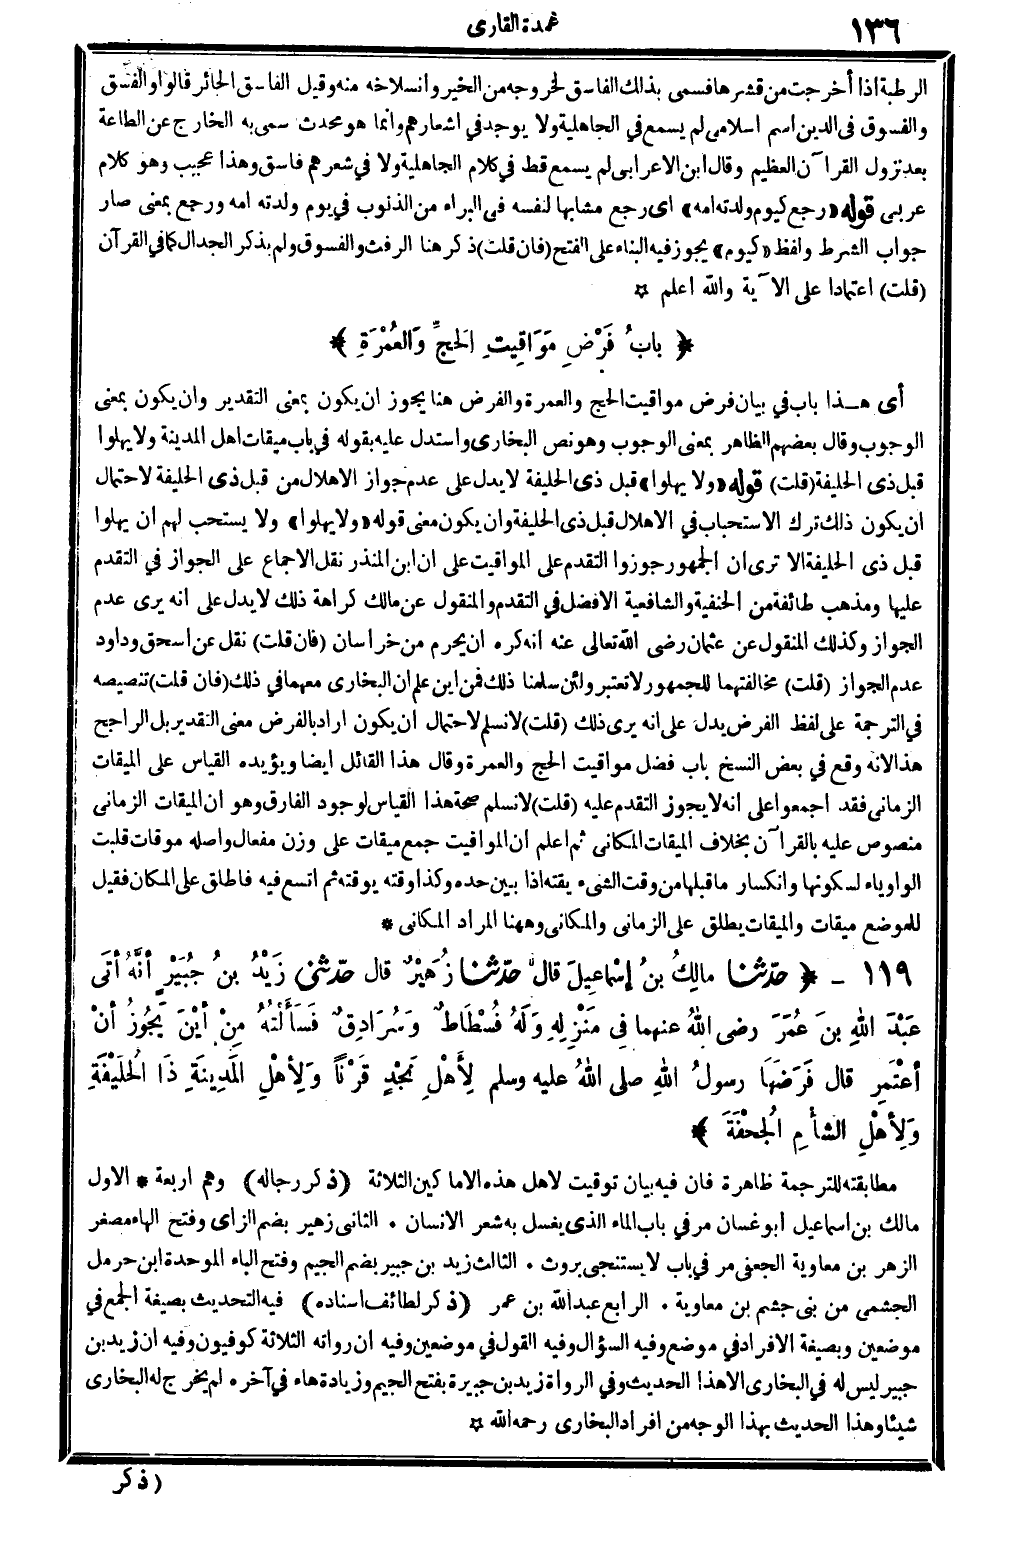 ١٣٦
عمدة القارى
الرطبة اذا أخرجت من قشرها فسمى بذلك الفاسق لخروجه من الخير وانسلاخه منه وقيل الفاسق الجائر قالوا والفسق
والفسوق فى الدين اسم اسلامى لم يسمع في الجاهلية ولا يوجد في اشعارهم وانما هو محدث سمى به الخارج عن الطاعة
بعد نزول القرآن العظيم وقال ابن الاعرابى لم يسمع قط في كلام الجاهلية ولا في شعرهم فاسق وهذا عجيب وهو كلام
عربى قوله «رجع كيوم ولدته امه» اى رجع مشابها لنفسه فى البراءة من الذنوب في يوم ولدته امه ورجع بمعنى صار
جواب الشرط ولفظ «كيوم» يجوز فيه البناء على الفتح (فان قلت) ذكر هنا الرفث والفسوق ولم يذكر الجدال كما في القرآن
(قلت) اعتمادا على الآية والله اعلم ✡
﴿ بابُ فَرْضِ مَوَاقِيتِ الحَجِّ وَالعُمْرَةِ ﴾
أى هـذا باب في بيان فرض مواقيت الحج والعمرة والفرض هنا يجوز ان يكون بمعنى التقدير وان يكون بمعنى
الوجوب وقال بعضهم الظاهر بمعنى الوجوب وهو نص البخارى واستدل عليه بقوله في باب ميقات اهل المدينة ولا يهلوا
قبل ذى الحليفة (قلت) قوله «ولا يهلوا» قبل ذى الحليفة لا يدل على عدم جواز الاهلال من قبل ذى الحليفة لاحتمال
ان يكون ذلك ترك الاستحباب في الاهلال قبل ذى الحليفة وان يكون معنى قوله «ولا يهلوا» ولا يستحب لهم ان يهلوا
قبل ذى الحليفة الا ترى ان الجمهور جوزوا التقدم على المواقيت على ان ابن المنذر نقل الاجماع على الجواز في التقدم
عليها ومذهب طائفة من الحنفية والشافعية الافضل في التقدم والمنقول عن مالك كراهة ذلك لا يدل على انه يرى عدم
الجواز وكذلك المنقول عن عثمان رضى الله تعالى عنه انه كره ان يحرم من خراسان (فان قلت) نقل عن اسحق وداود
عدم الجواز (قلت) مخالفتهما للجمهور لا تعتبر ولئن سلمنا ذلك فمن اين علم ان البخارى معهما في ذلك (فان قلت) تنصيصه
في الترجمة على لفظ الفرض يدل على انه يرى ذلك (قلت) لا نسلم لاحتمال أن يكون اراد بالفرض معنى التقدير بل الراجح
هذا لانه وقع في بعض النسخ باب فضل مواقيت الحج والعمرة وقال هذا القائل ايضا ويؤيده القياس على الميقات
الزمانى فقد اجمعوا على انه لا يجوز التقدم عليه (قلت) لا نسلم صحة هذا القياس لوجود الفارق وهو ان الميقات الزمانى
منصوص عليه بالقرآن بخلاف الميقات المكانى ثم اعلم ان المواقيت جمع ميقات على وزن مفعال واصله موقات قلبت
الواو ياء لسكونها وانكسار ما قبلها من وقت الشىء يقته اذا بين حده وكذا وقته يوقته ثم اتسع فيه فاطلق على المكان فقيل
للموضع ميقات والميقات يطلق على الزمانى والمكانى وههنا المراد المكانى *
١١٩ - ﴿ حدّثنا مالِكُ بنُ إسْماعِيلَ قال حدّثنا زُهَيْرٌ قال حدّثنى زَيْدُ بنُ جُبَيْرٍ أنَّهُ أتَى
عَبْدَ اللهِ بنَ عُمَرَ رضى اللهُ عنهما فى مَنْزِلِهِ وَلَهُ فُسْطَاطٌ وَسُرَادِقٌ فَسَأَلْتُهُ مِنْ أيْنَ يَجُوزُ أنْ
أعْتَمِرَ قال فَرَضَهَا رسولُ اللهِ صلى اللهُ عليه وسلم لِأَهْلِ نَجْدٍ قَرْناً وَلِأهْلِ المَدِينَةِ ذَا الحُلَيْفَةِ
وَلِأهْلِ الشأمِ الجُحْفَةَ ﴾
مطابقته للترجمة ظاهرة فان فيه بيان توقيت لاهل هذه الاماكين الثلاثة (ذكر رجاله) وهم اربعة * الاول
مالك بن اسماعيل ابو غسان مر في باب الماء الذى يغسل به شعر الانسان . الثانى زهير بضم الزاى وفتح الهاء مصغر
الزهر بن معاوية الجعفى مر في باب لا يستنجى بروث . الثالث زيد بن جبير بضم الجيم وفتح الباء الموحدة ابن حرمل
الجشمى من بنى جشم بن معاوية . الرابع عبدالله بن عمر (ذكر لطائف اسناده) فيه التحديث بصيغة الجمع في
موضعين وبصيغة الافراد في موضع وفيه السؤال وفيه القول في موضعين وفيه ان رواته الثلاثة كوفيون وفيه ان زيد بن
جبير ليس له في البخارى الا هذا الحديث وفي الرواة زيد بن جبيرة بفتح الجيم وزيادة هاء في آخره لم يخرج له البخارى
شيئا وهذا الحديث بهذا الوجه من افراد البخارى رحمه الله ✡
(ذكر